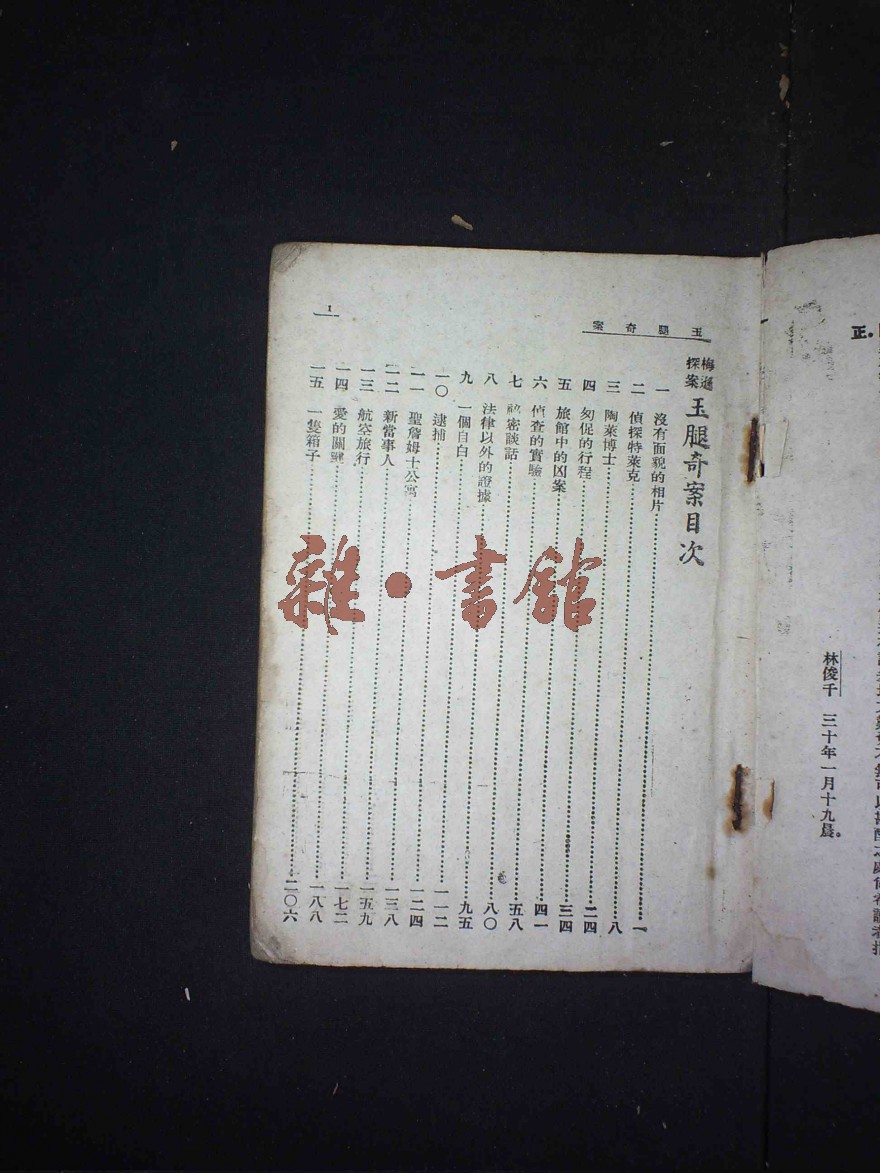 正
林俊千 三十年一月十九晨。
玉腿奇案
1
梅遜探案 玉腿奇案目次
一 沒有面貌的相片……一
二 偵探特萊克……八
三 陶萊博士……二四
四 匆促的行程……三四
五 旅館中的凶案……四一
六 偵查的實驗……五八
七 秘密談話……八〇
八 法律以外的證據……九五
九 一個自白……一一二
一〇 逮捕……一二四
一一 聖詹姆士公寓……一三八
一二 新當事人……一五九
一三 航空旅行……一七二
一四 愛的關鍵……一八八
一五 一隻箱子……二〇六
雜·書館